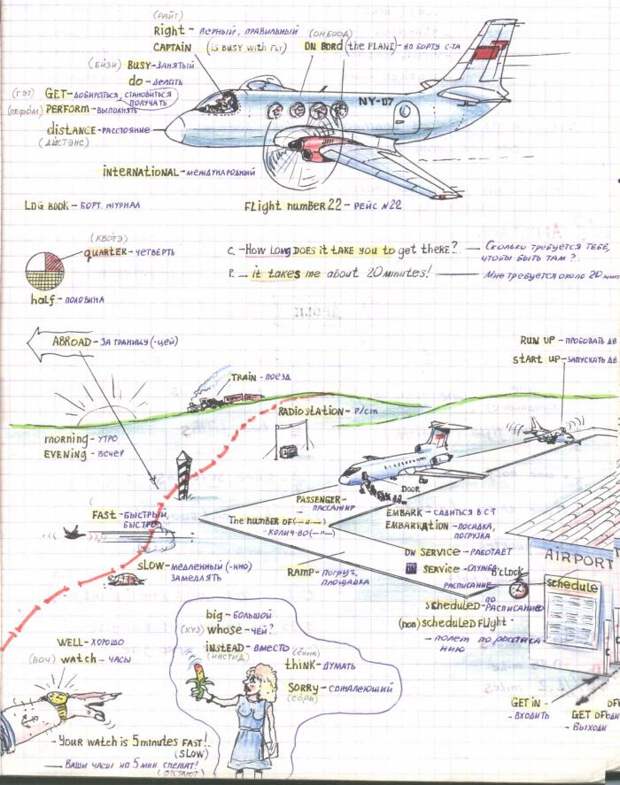 (РАЙТ)
Right - верный, правильный
CAPTAIN (IS BUSY WITH FLY)
(ОНБОРД)
ON BORD (the PLANE) - НА БОРТУ С-ТА
(БИЗИ) BUSY - ЗАНЯТЫЙ
do - ДЕЛАТЬ
(ГЭТ) GET - ДОБИРАТЬСЯ, СТАНОВИТЬСЯ
ПОЛУЧАТЬ
PERFORM - ВЫПОЛНЯТЬ
distANCE - РАССТОЯНИЕ
(ДИСТЭНС)
NY-07
INTERNATIONAL - МЕЖДУНАРОДНЫЙ
LOG BOOK - БОРТ. ЖУРНАЛ
FLight number 22 - РЕЙС №22
(КВОТЭ)
QUARTER - ЧЕТВЕРТЬ
half - ПОЛОВИНА
C. - How LONG DOES it TAKE YOU to get THERE? - Сколько требуется тебе,
чтобы быть там?
P. - it takes me about 20 minutes! - Мне требуется около 20
ABROAD - ЗА ГРАНИЦУ (-ЦЕЙ)
RUN UP - ПРОБОВАТЬ ДВ
START UP - ЗАПУСКАТЬ ДВ
TRAIN - ПОЕЗД
RADIO STATION - Р/СТ
morning - УТРО
EVENING - ВЕЧЕР
DOOR
PASSENGER -
ПАССАЖИР
FAST - БЫСТРЫЙ,
БЫСТРО
The NUMBER OF (-"-)
- КОЛИЧ-ВО (-"-)
EMBARK - САДИТЬСЯ В С-Т
EMBARKATION - ПОСАДКА,
ПОГРУЗКА
ON SERVICE - РАБОТАЕТ
SERVICE - СЛУЖБА
SLOW - МЕДЛЕННЫЙ (-ННО)
ЗАМЕДЛЯТЬ
RAMP - ПОГРУЗ.
ПЛОЩАДКА
O'CLOCK
AIRPORT
schedule
РАСПИСАНИЕ
scheduled - ПО РАСПИСАНИЮ
(non) scheduled FLight
- ПОЛЕТ ПО РАСПИСАНИЮ
big - БОЛЬШОЙ
(ХУЗ) whose - ЧЕЙ?
INSTEAD - ВМЕСТО
(ИНСТИД)
think - ДУМАТЬ
SORRY - СОЖАЛЕЮЩИЙ
(СОРИ)
WELL - ХОРОШО
(ВОЧ) watch - ЧАСЫ
GET IN -
- ВХОДИТЬ
GET OFF
- ВЫХОДИ
- YOUR WATCH IS 5 minutes FAST!
(SLOW)
- ВАШИ ЧАСЫ НА 5 МИН СПЕШАТ!
(ОТСТАЮТ)